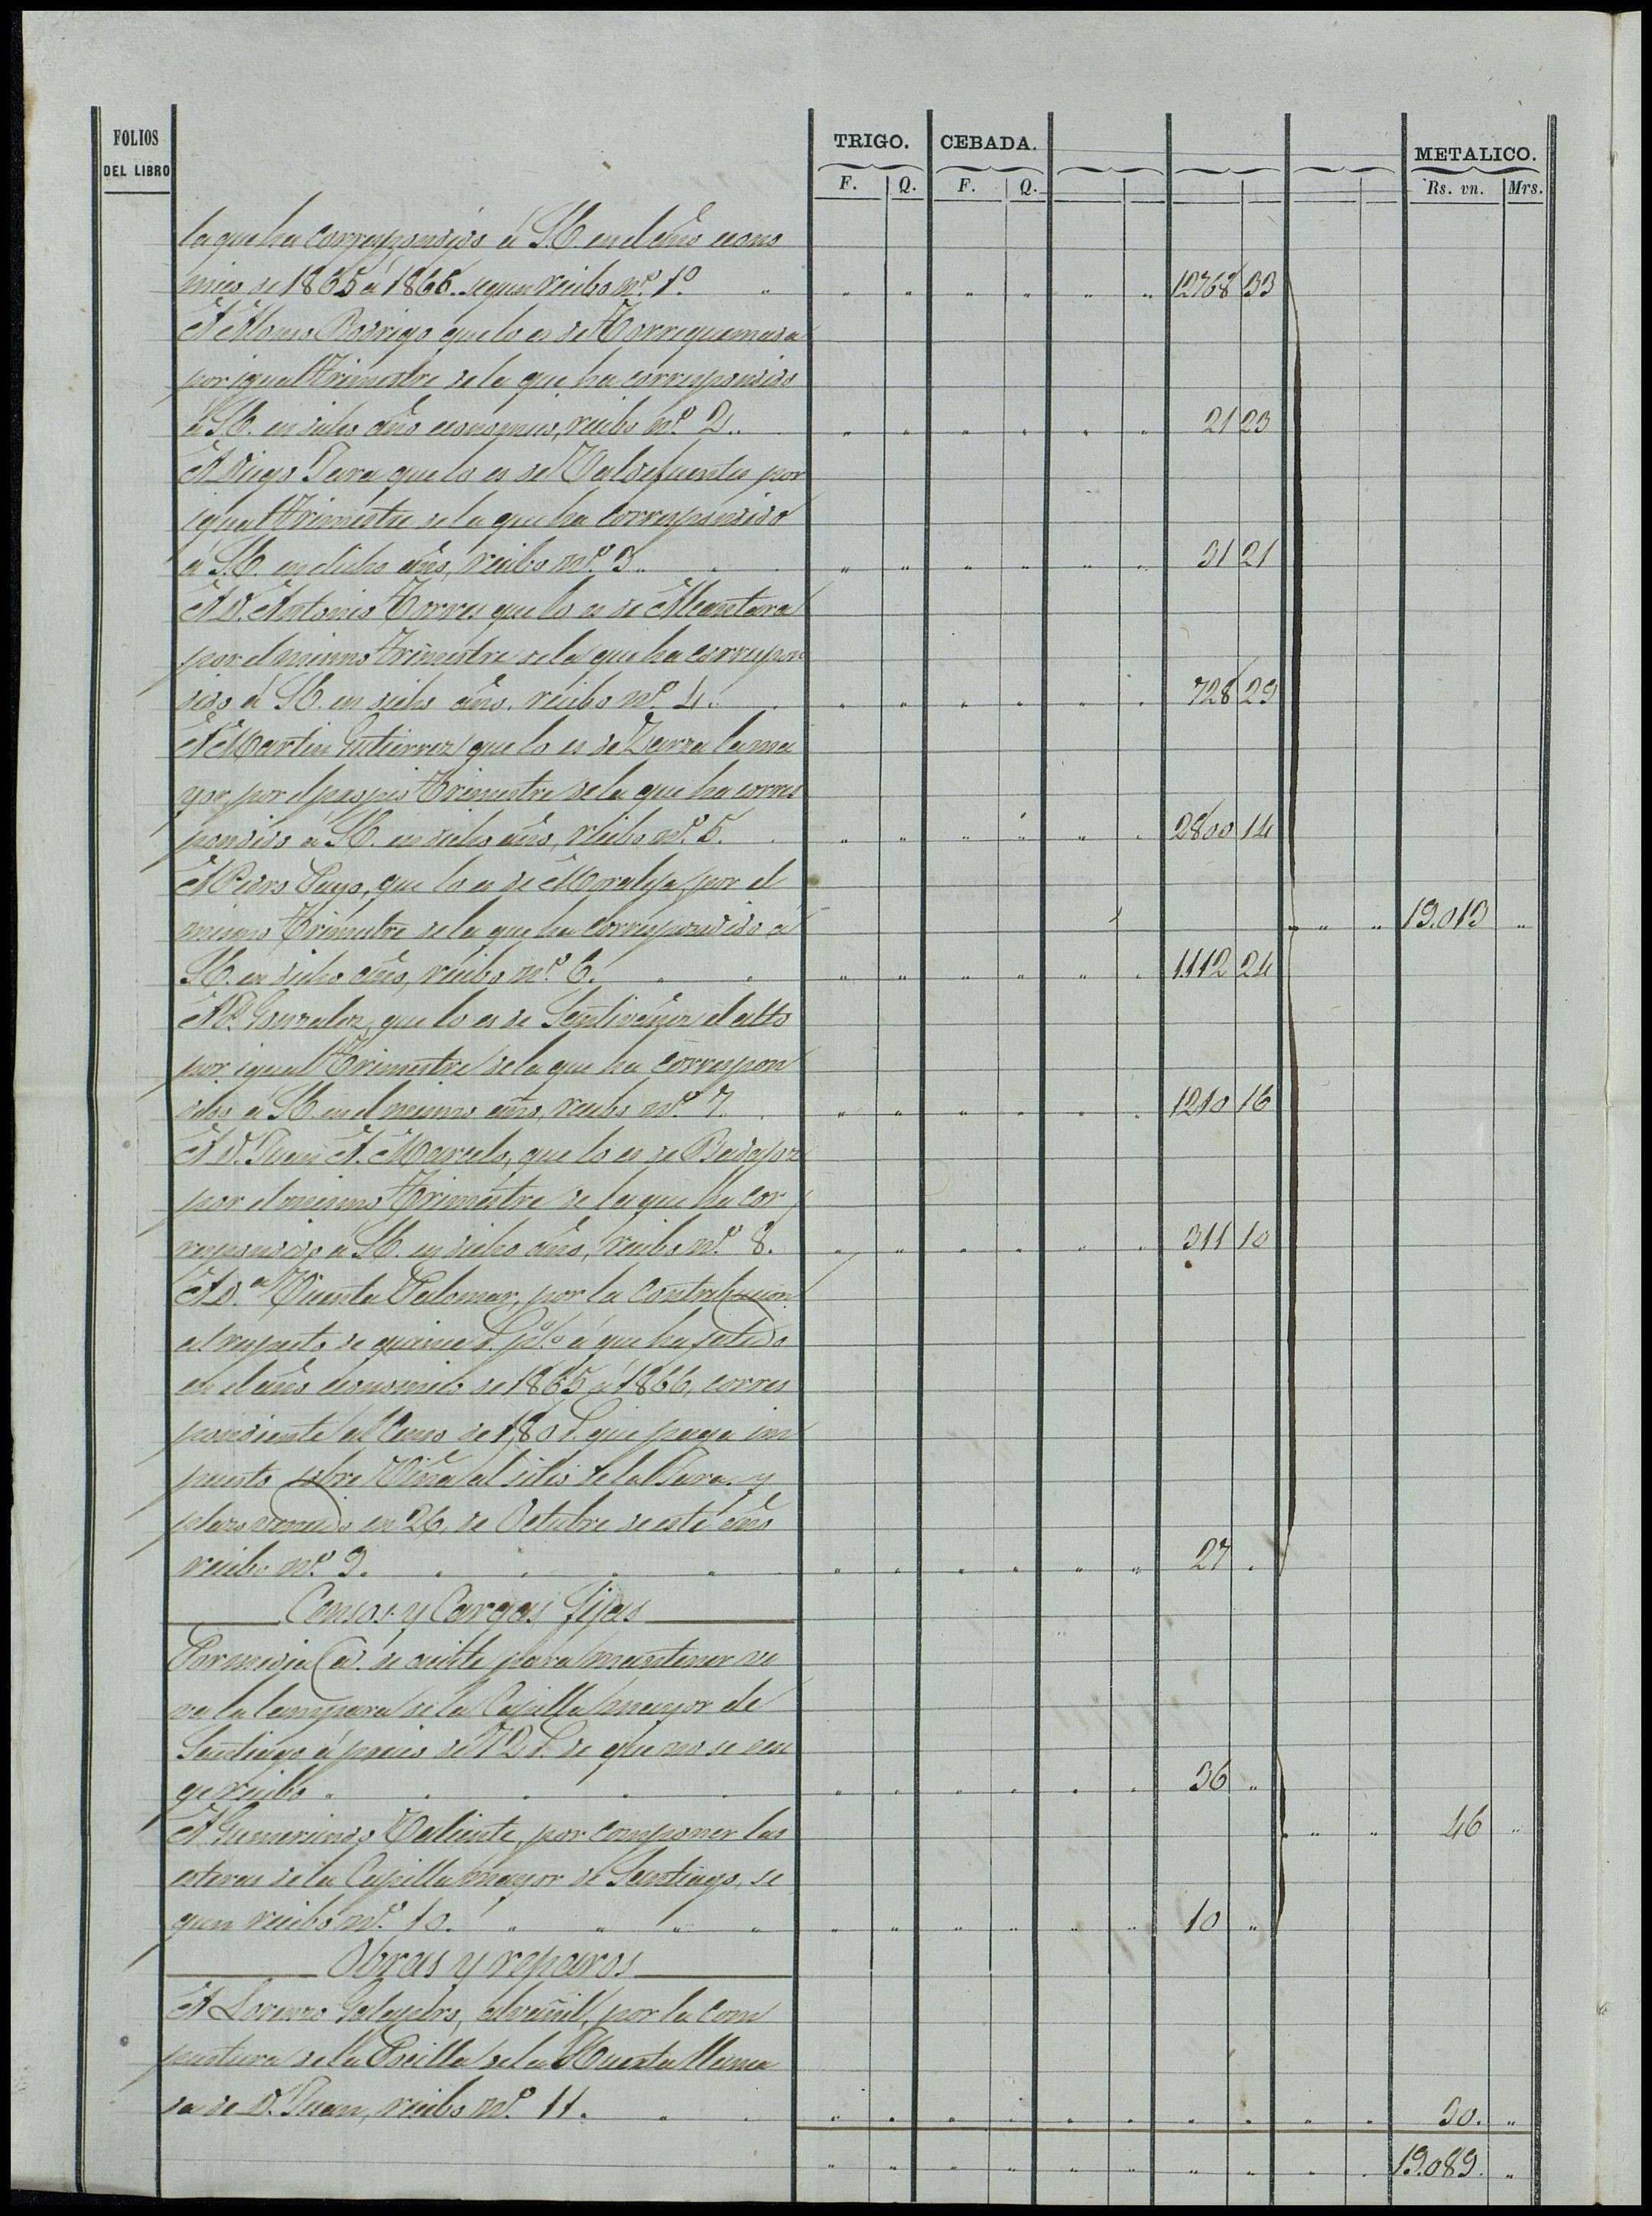 FOLIOS
DEL LIBRO
TRIGO. CEBADA. METALICO.
F. Q. F. Q. Rs. vn. Mrs.
la que ha correspondido á S.E. en el año econo
mico de 1865 á 1866. segun recibo nº. 1º " " " " " " " 12768 33
A Alonso Rodrigo que lo es de Torrequemada
por igual Trimestre de la que ha correspondido
á S.E. en dicho año economico, recibo nº. 2. " " " " " " 21 23
A Diego Jara que lo es de Valdefuentes por
igual Trimestre de la que ha correspondido
á S.E. en dicho año, recibo nº. 3. " " " " " " 31 21
A D. Antonio Torres que lo es de Alcantara
por el mismo Trimestre de la que ha correspon
dido á S.E. en dicho año, recibo nº. 4. " " " " " " 728 29
A Martin Gutierrez que lo es de Zarza la ma
yor, por el propio Trimestre de la que ha corres
pondido á S.E. en dicho año, recibo nº. 5. " " " " " " 2800 14
A Pedro Payo, que lo es de Moraleja, por el
mismo Trimestre de la que ha correspondido á " " " 19.013 "
S.E. en dicho año, recibo nº. 6. " " " " " " 1112 24
A Gonzalez, que lo es de Santivañez el alto
por igual Trimestre de la que ha correspon
dido á S.E. en el mismo año, recibo nº. 7. " " " " " " 1210 16
A D. Juan A. Marcelo, que lo es de Badajoz
por el mismo Trimestre de la que ha cor
respondido á S.E. en dicho año, recibo nº. 8. " " " " " " 311 10
A D.ª Vicenta Palomar, por la contribucion
al respecto de quince p% á que ha salido
en el año economico de 1865 á 1866, corres
pondiente al Censo de 180 que paga im
puesto sobre Viña al sitio de la Jara y
plazo vencido en 26 de Octubre de este año
recibo nº. 9. " " " " " " 27 "
Censos y Cargas fijas
Por media @ de aceite para mantener vi
va la lampara de la Capilla mayor de
Santiago á precio de 72 de que no se exi
ge recibo " " " " " " 36 "
A Gumersindo Valiente, por componer las " " " 46 "
esteras de la Capilla mayor de Santiago, se
gun recibo nº. 10. " " " " " " 10 "
Obras y reparos
A Lorenzo Galapero, alvañil, por la com
postura de la Pocilla de la Huerta llama
da de D. Juan, recibo nº. 11. " " " " " " " " " " 30. "
" " " " " " " " " " 19.089. "